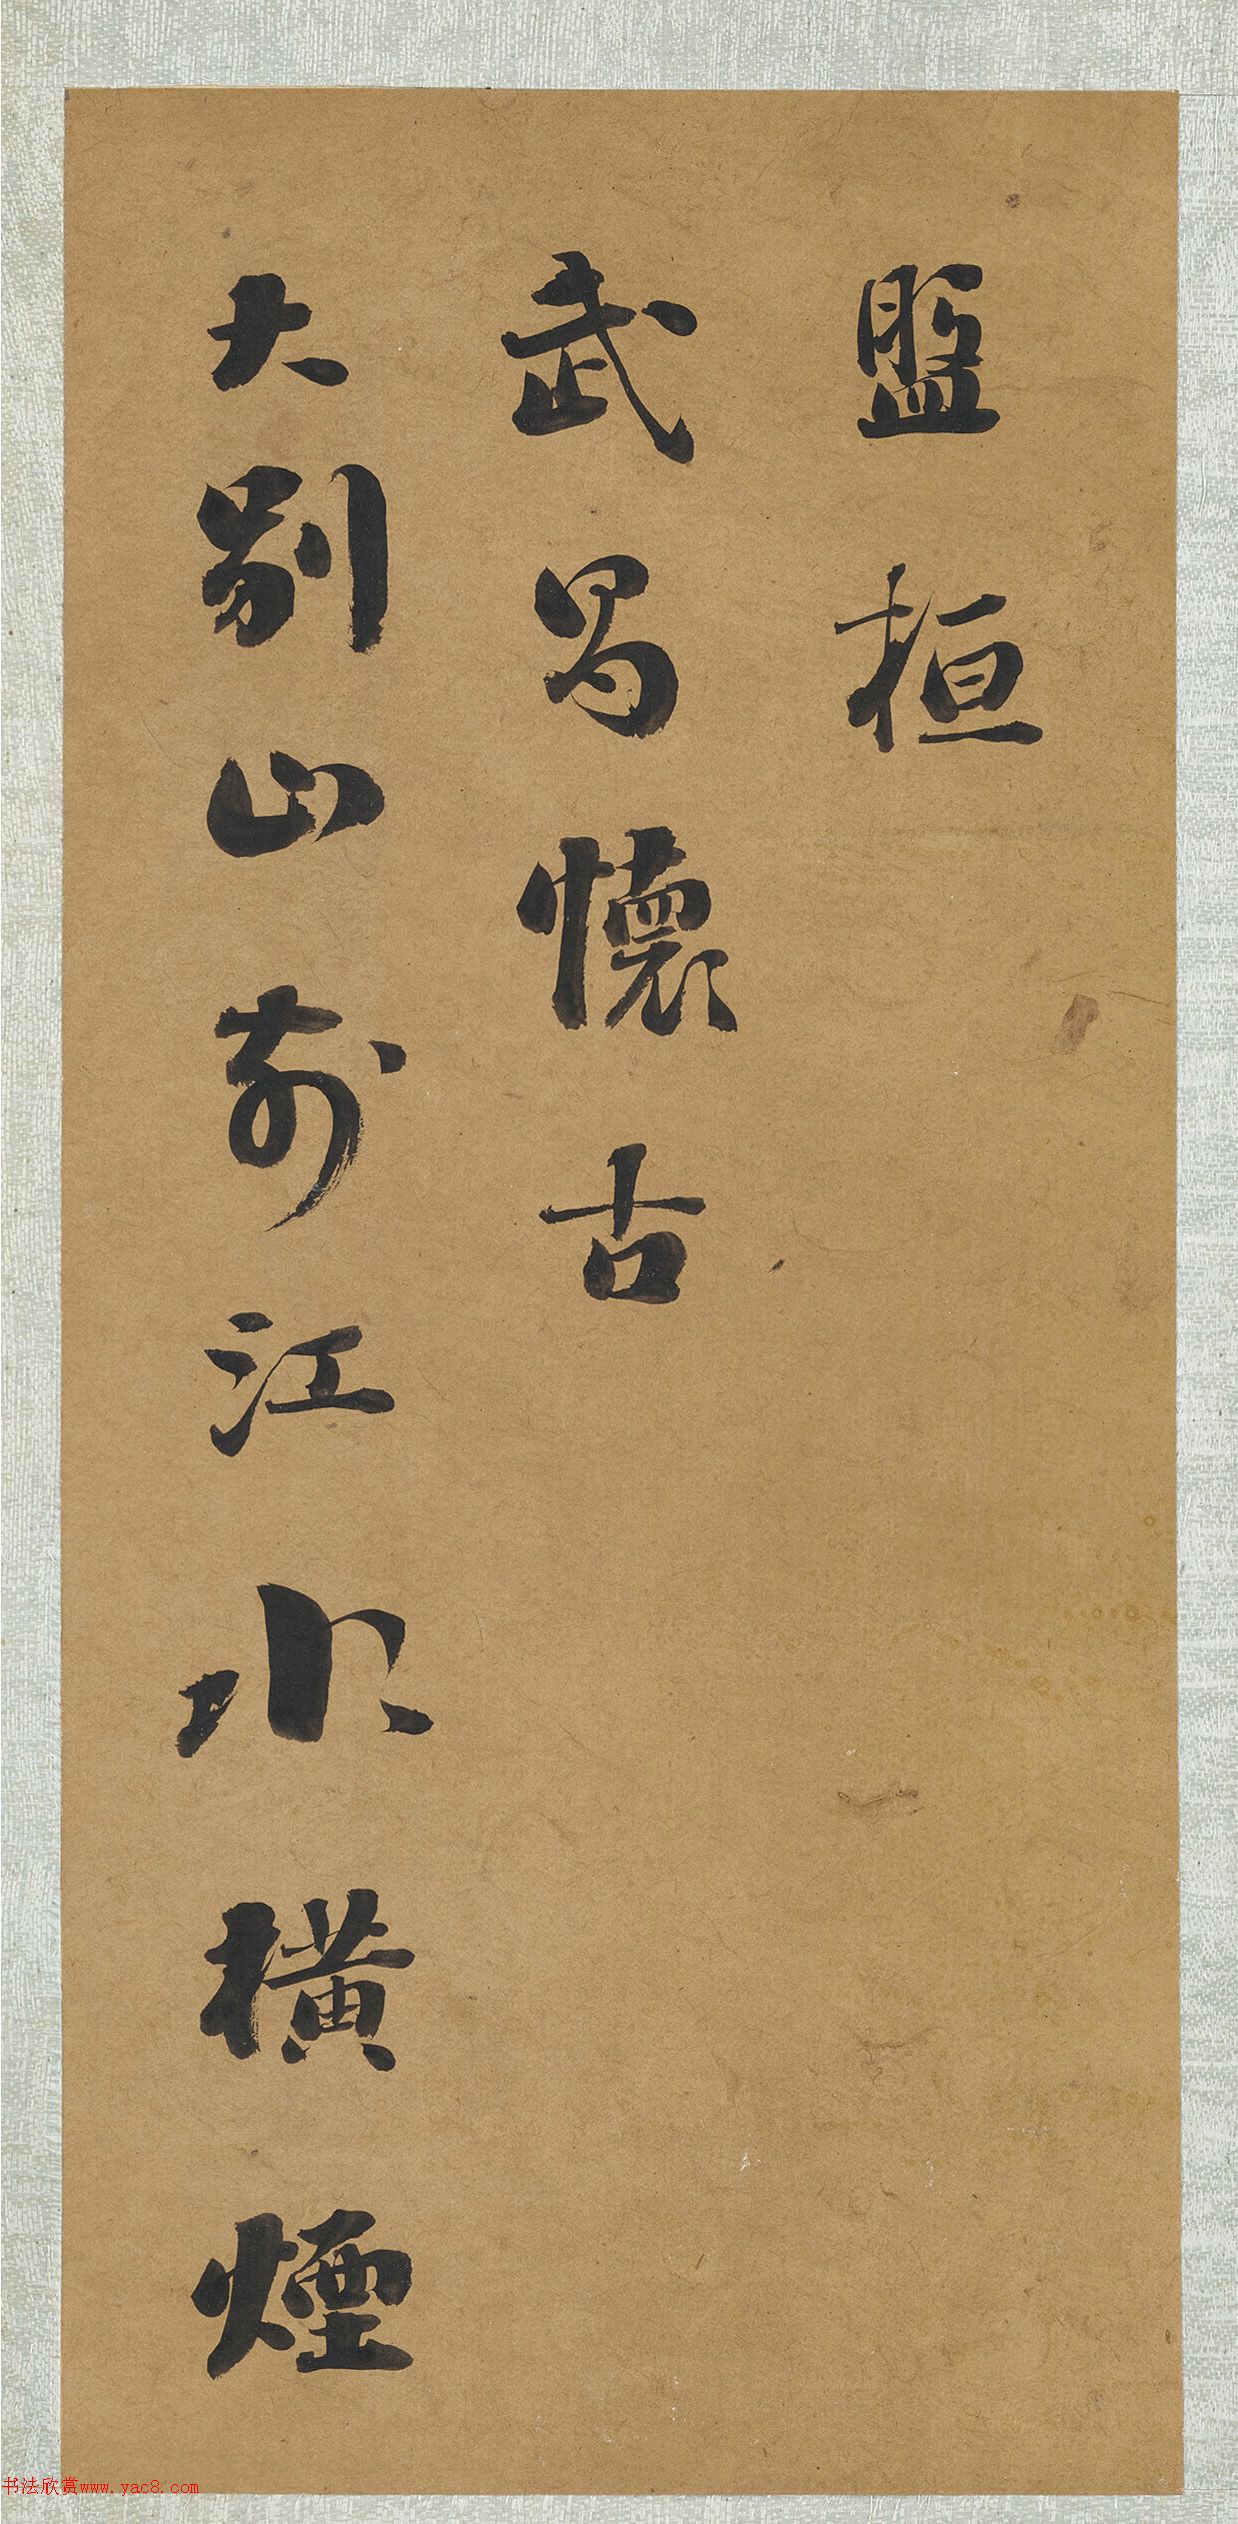 盤桓
武昌懷古
大別山前江水橫煙
书法欣赏www.yac8.com